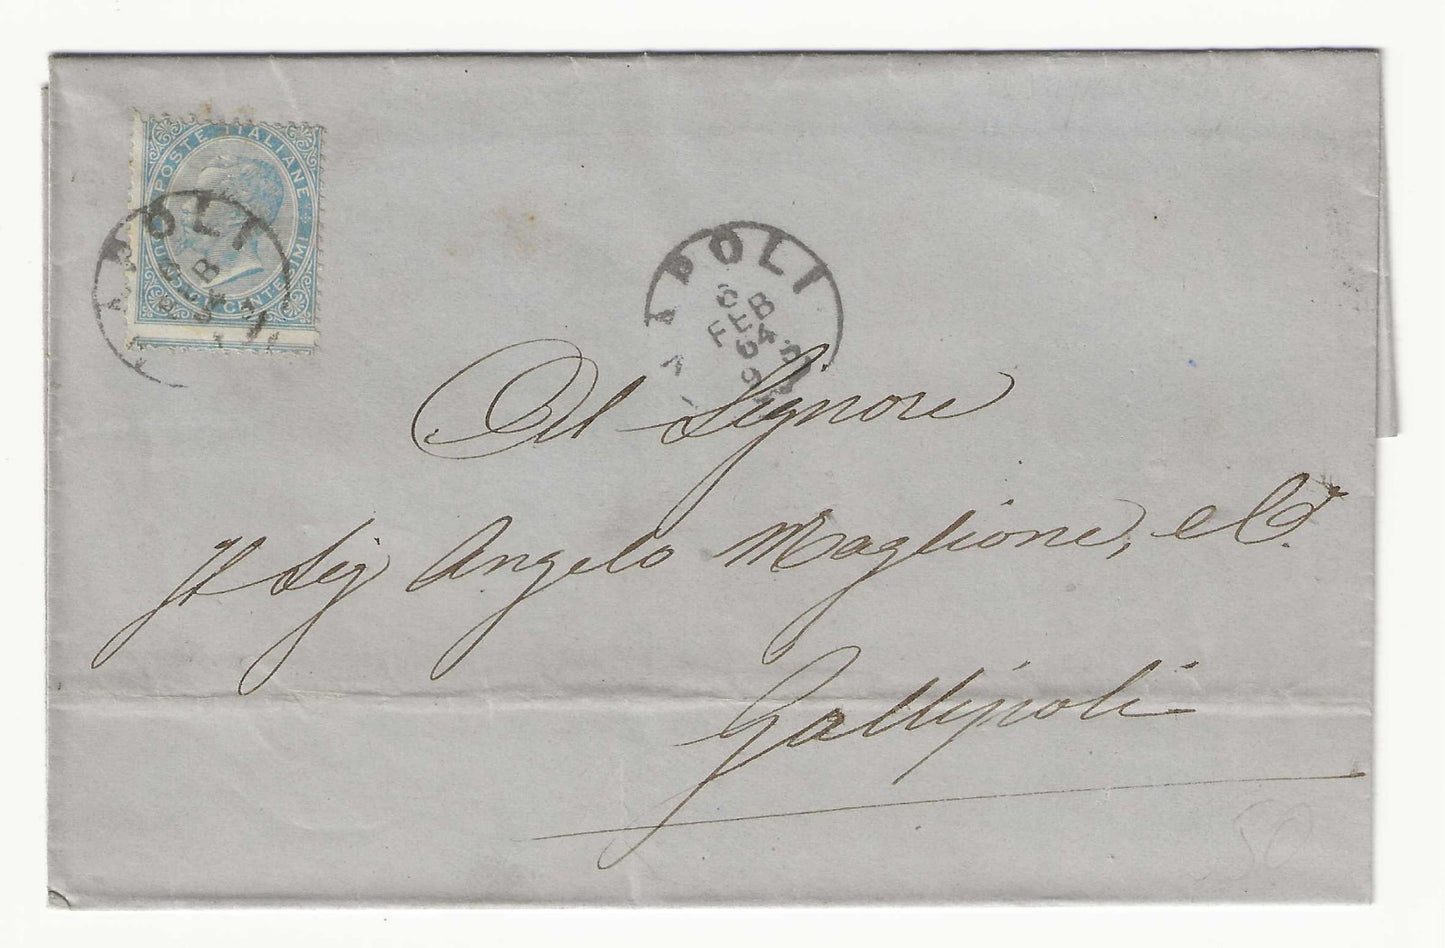 POSTE ITALIANE
CENTESIMI
NAPOLI
6
FEB
64
NAPOLI
6
FEB
64
Al Signore
Il Sig Angelo Maglione, e C.
Gallipoli
50